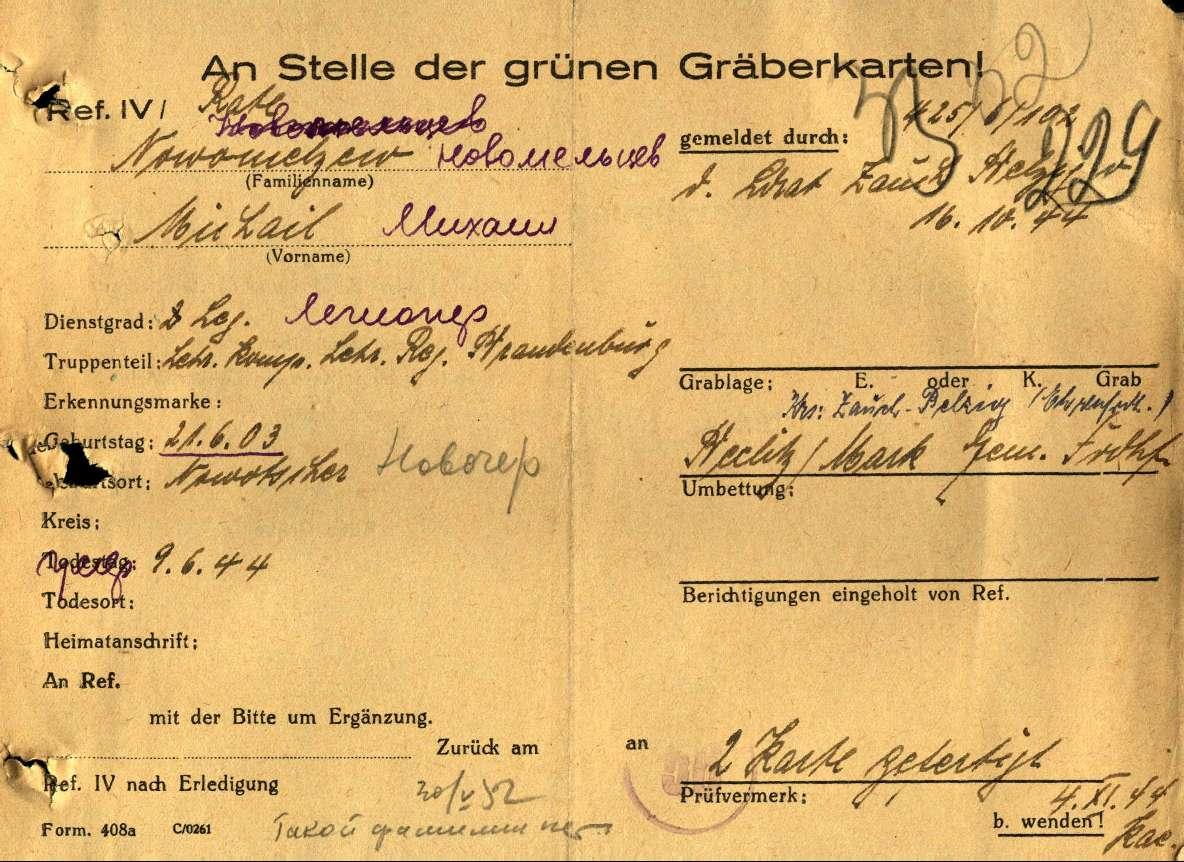 An Stelle der grünen Gräberkarten!
52
Ref. IV /
425/6/102
229
gemeldet durch:
Nowomelzew Новомельцев
(Familienname)
d. Ldrat Zauch Belzig v.
16. 10. 44
Michail Михаил
(Vorname)
Dienstgrad: Leg. Легионер
Truppenteil: Lehr. Komp. Lehr. Reg. Brandenburg
Erkennungsmarke:
Geburtstag: 21.6.03
Geburtsort: Nowotscher Новочер
Kreis:
Todestag: 9.6.44
Todesort:
Heimatanschrift:
An Ref.
mit der Bitte um Ergänzung.
Zurück am
an
Ref. IV nach Erledigung
30/V 52
Form. 408a C/0261
Такой фамилии нет
Grablage: E. oder K. Grab
Krs: Zauch-Belzig
Beelitz/Mark Gem. Frdhf.
Umbettung:
Berichtigungen eingeholt von Ref.
2 Karte gefertigt
Prüfvermerk:
4. XI. 44
b. wenden!